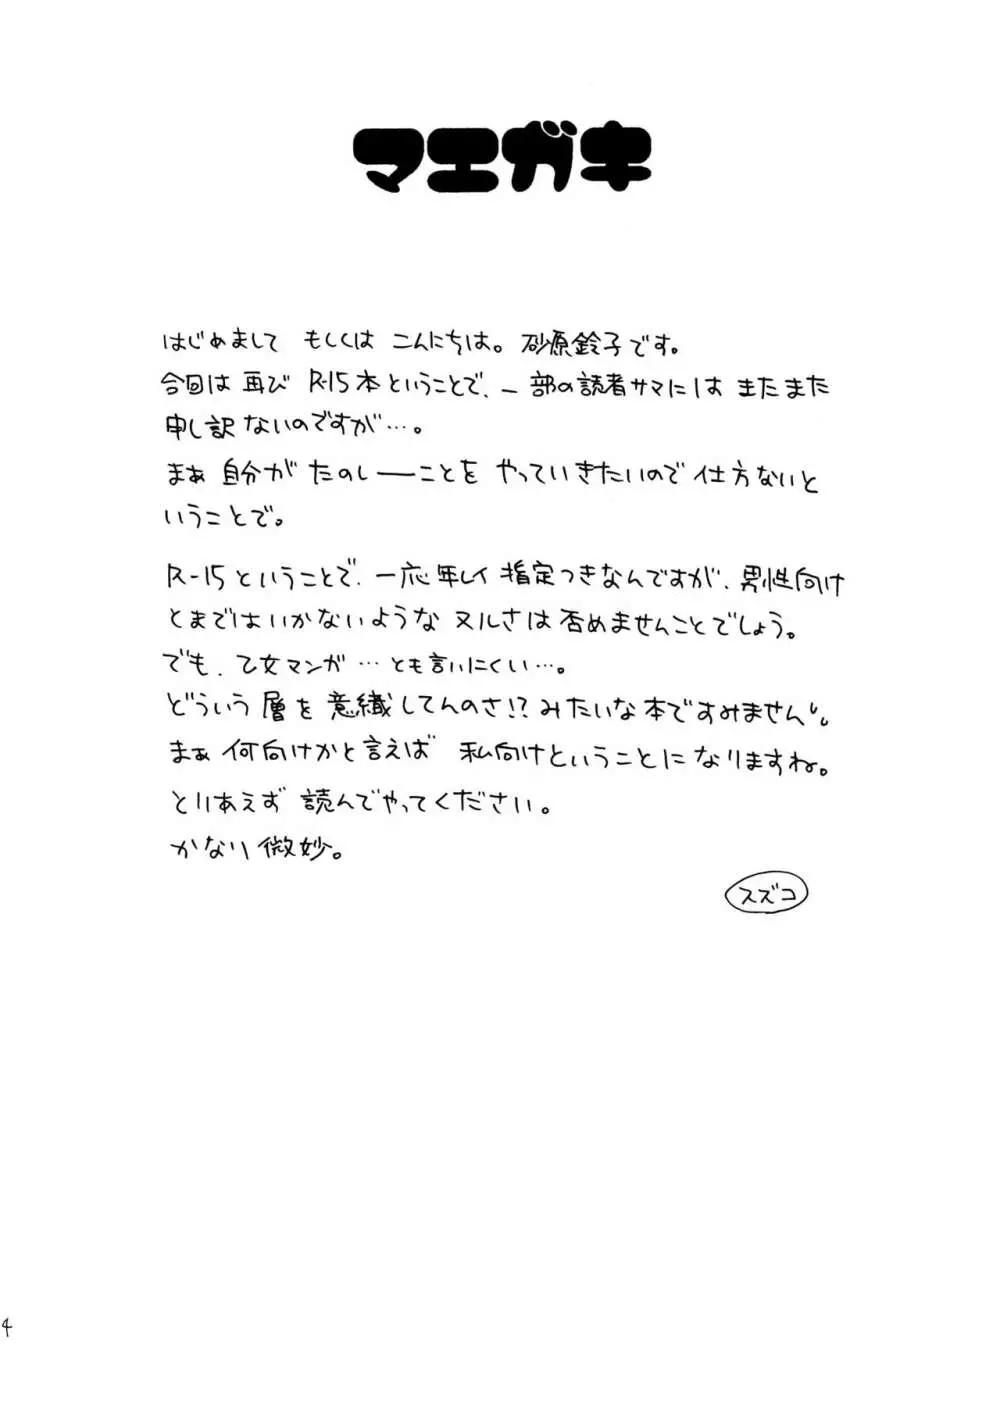 マエガキ
はじめまして もしくは こんにちは。砂原鈴子です。
今回は再び R-15本ということで、一部の読者サマにはまたまた
申し訳ないのですが…。
まぁ自分がたのしーーことをやっていきたいので仕方ないと
いうことで。
R-15ということで、一応年レイ指定つきなんですが、男性向け
とまではいかないようなヌルさは否めませんことでしょう。
でも、乙女マンガ…とも言いにくい…。
どういう層を意識してんのさ!?みたいな本ですみません。
まぁ何向けかと言えば 私向けということになりますね。
とりあえず読んでやってください。
かなり微妙。
スズコ
4